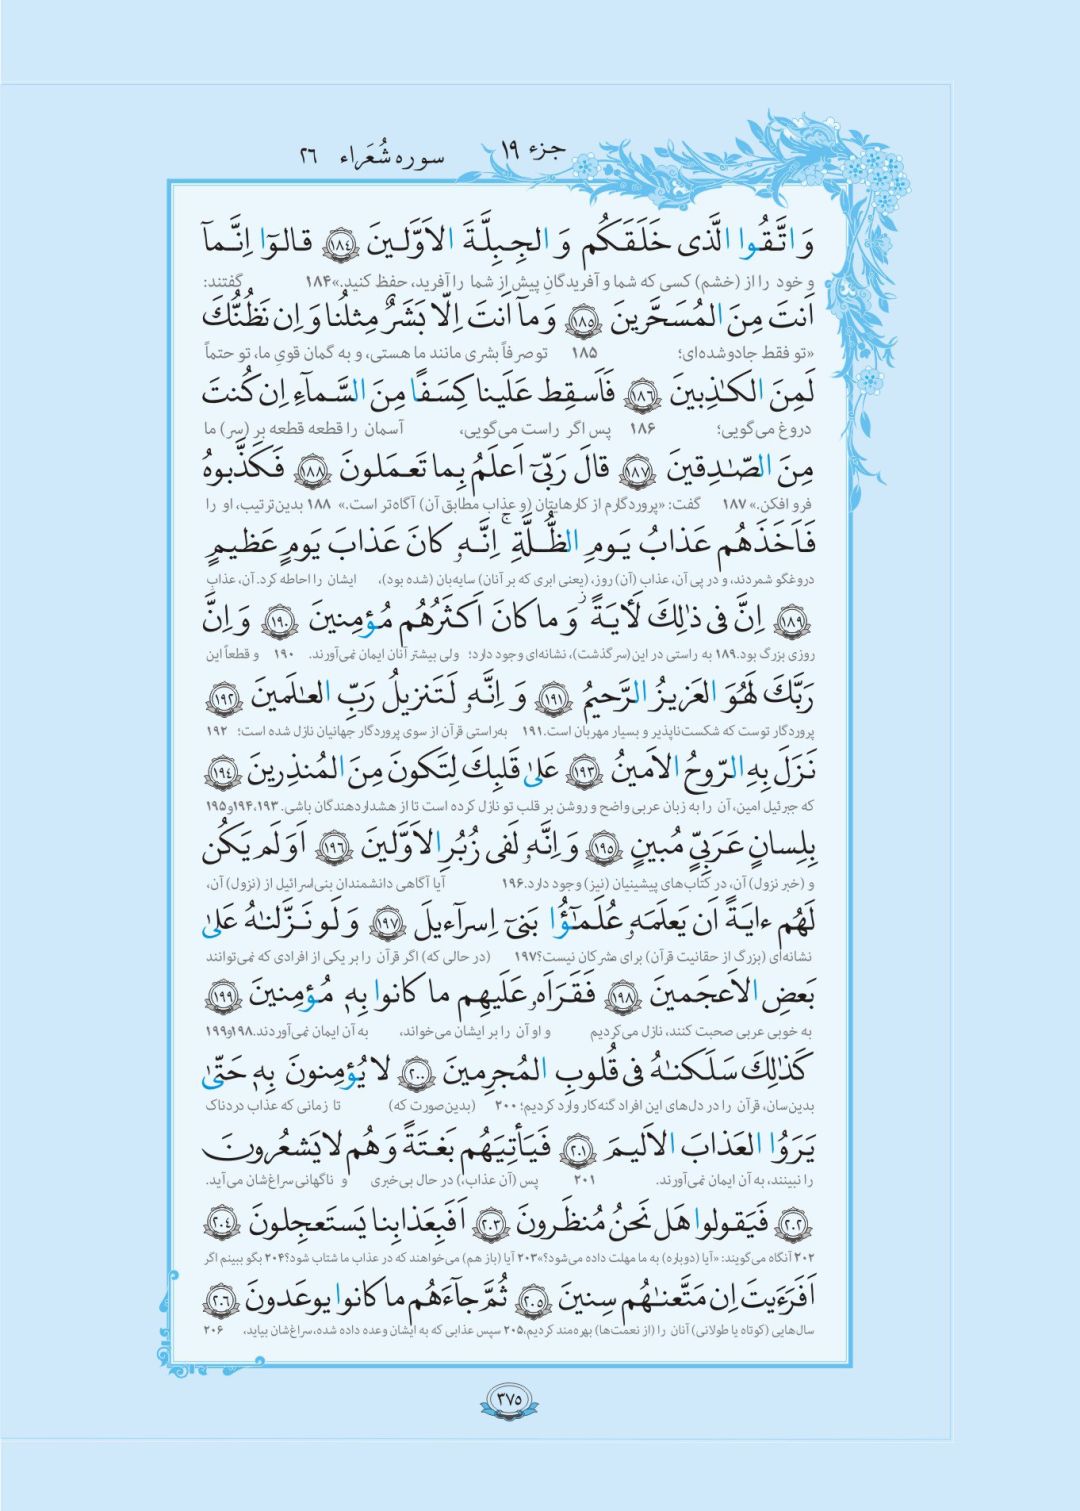 جزء ۱۹
سوره شُعَراء ۲۶
وَ اتَّقُوا الَّذی خَلَقَکُم وَ الجِبِلَّةَ الاَوَّلـینَ ﴿۱۸۴﴾ قـالـوٓا اِنَّـمآ
و خود را از (خشم) کسی که شما و آفریدگانِ پیش از شما را آفرید، حفظ کنید.» ۱۸۴ گفتند:
اَنتَ مِنَ المُسَحَّرینَ ﴿۱۸۵﴾ وَ مآ اَنتَ اِلّا بَشَرٌ مِثلُنا وَ اِن نَظُنُّکَ
«تو فقط جادوشده‌ای؛ ۱۸۵ تو صرفاً بشری مانند ما هستی، و به گمان قویِ ما، تو حتماً
لَمِنَ الکـٰذِبینَ ﴿۱۸۶﴾ فَاَسقِط عَلَینا کِسَفًا مِنَ السَّمآءِ اِن کُنتَ
دروغ می‌گویی؛ ۱۸۶ پس اگر راست می‌گویی، آسمان را قطعه قطعه بر (سر) ما
مِنَ الصّـٰدِقینَ ﴿۱۸۷﴾ قالَ رَبّیٓ اَعلَمُ بِما تَعـمَلونَ ﴿۱۸۸﴾ فَـکَذَّبوهُ
فرو افکن.» ۱۸۷ گفت: «پروردگارم از کارهایتان (و عذاب مطابق آن) آگاه‌تر است.» ۱۸۸ بدین‌ترتیب، او را
فَـاَخَذَهُم عَذابُ یَـومِ الظُّـلَّةِ ۚ اِنَّـهٗ کانَ عَذابَ یَومٍ عَظیمٍ
دروغگو شمردند، و در پی آن، عذاب (آن) روز، (یعنی ابری که بر آنان) سایه‌بان (شده بود)، ایشان را احاطه کرد. آن، عذابِ
﴿۱۸۹﴾ اِنَّ فی ذٰلِکَ لَـأیَةً ۖ وَ ما کانَ اَکثَرُهُم مُؤمِنینَ ﴿۱۹۰﴾ وَ اِنَّ
روزی بزرگ بود. ۱۸۹ به راستی در این (سرگذشت)، نشانه‌ای وجود دارد؛ ولی بیشتر آنان ایمان نمی‌آورند. ۱۹۰ و قطعاً این
رَبَّکَ لَهُوَ العَزیزُ الرَّحیمُ ﴿۱۹۱﴾ وَ اِنَّـهٗ لَـتَنزیلُ رَبِّ العـٰلَمینَ ﴿۱۹۲﴾
پروردگار توست که شکست‌ناپذیر و بسیار مهربان است. ۱۹۱ به‌راستی قرآن از سوی پروردگار جهانیان نازل شده است؛ ۱۹۲
نَـزَلَ بِهِ الرّوحُ الاَمینُ ﴿۱۹۳﴾ عَلیٰ قَلبِکَ لِتَکونَ مِنَ المُنذِرینَ ﴿۱۹۴﴾
که جبرئیل امین، آن را به زبان عربی واضح و روشن بر قلب تو نازل کرده است تا از هشداردهندگان باشی. ۱۹۳، ۱۹۴و۱۹۵
بِلِسانٍ عَرَبِیٍّ مُبینٍ ﴿۱۹۵﴾ وَ اِنَّهٗ لَفی زُبُرِ الاَوَّلینَ ﴿۱۹۶﴾ اَوَ لَم یَکُن
و (خبر نزول) آن، در کتاب‌های پیشینیان (نیز) وجود دارد. ۱۹۶ آیا آگاهی دانشمندان بنی‌اسرائیل از (نزول) آن،
لَهُم ءایَةً اَن یَعلَمَهٗ عُلَمـٰٓؤُا بَنیٓ اِسرآءیلَ ﴿۱۹۷﴾ وَ لَو نَـزَّلنـٰهُ عَلیٰ
نشانه‌ای (بزرگ از حقانیت قرآن) برای مشرکان نیست؟ ۱۹۷ (در حالی که) اگر قرآن را بر یکی از افرادی که نمی‌توانند
بَعضِ الاَعجَمینَ ﴿۱۹۸﴾ فَقَرَاَهٗ عَلَیهِم ما کانوا بِهٖ مُؤمِنینَ ﴿۱۹۹﴾
به خوبی عربی صحبت کنند، نازل می‌کردیم و او آن را بر ایشان می‌خواند، به آن ایمان نمی‌آوردند. ۱۹۸و۱۹۹
کَذٰلِکَ سَلَکنـٰهُ فی قُلوبِ المُجرِمینَ ﴿۲۰۰﴾ لا یُؤمِنونَ بِهٖ حَتّیٰ
بدین‌سان، قرآن را در دل‌های این افراد گنه‌کار وارد کردیم؛ ۲۰۰ (بدین‌صورت که) تا زمانی که عذاب دردناک
یَـرَوُا العَذابَ الاَلیمَ ﴿۲۰۱﴾ فَیَأتِیَهُم بَغتَةً وَ هُم لا یَشعُرونَ
را نبینند، به آن ایمان نمی‌آورند. ۲۰۱ پس (آن عذاب،) در حال بی‌خبری و ناگهانی سراغشان می‌آید.
﴿۲۰۲﴾ فَیَقولوا هَل نَحنُ مُنظَرونَ ﴿۲۰۳﴾ اَفَبِعَذابِنا یَستَعجِلونَ ﴿۲۰۴﴾
۲۰۲ آنگاه می‌گویند: «آیا (دوباره) به ما مهلت داده می‌شود؟» ۲۰۳ آیا (باز هم) می‌خواهند که در عذاب ما شتاب شود؟ ۲۰۴ بگو ببینم اگر
اَفَرَءَیتَ اِن مَتَّعنـٰهُم سِنینَ ﴿۲۰۵﴾ ثُمَّ جآءَهُم ما کانوا یوعَدونَ ﴿۲۰۶﴾
سال‌هایی (کوتاه یا طولانی) آنان را (از نعمت‌ها) بهره‌مند کردیم، ۲۰۵ سپس عذابی که به ایشان وعده داده شده، سراغشان بیاید، ۲۰۶
۳۷۵